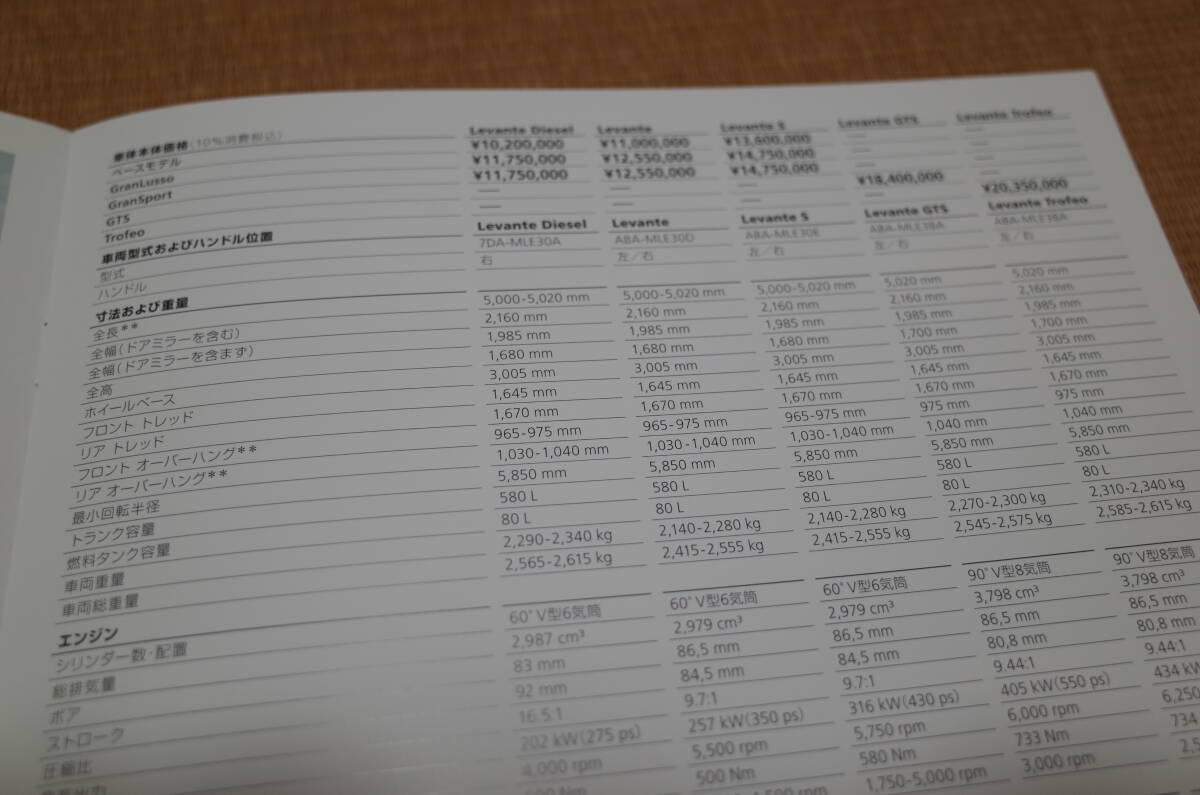 車体本体価格(10%消費税込) Levante Diesel Levante Levante S Levante GTS Levante Trofeo
ベースモデル ¥10,200,000 ¥11,000,000 ¥13,600,000 — —
GranLusso ¥11,750,000 ¥12,550,000 ¥14,750,000 — —
GranSport ¥11,750,000 ¥12,550,000 ¥14,750,000 — —
GTS — — — ¥18,400,000 —
Trofeo — — — — ¥20,350,000
車両型式およびハンドル位置 Levante Diesel Levante Levante S Levante GTS Levante Trofeo
型式 7DA-MLE30A ABA-MLE30D ABA-MLE30E ABA-MLE38A ABA-MLE38A
ハンドル 右 左/右 左/右 左/右 左/右
寸法および重量
全長** 5,000-5,020 mm 5,000-5,020 mm 5,000-5,020 mm 5,020 mm 5,020 mm
全幅(ドアミラーを含む) 2,160 mm 2,160 mm 2,160 mm 2,160 mm 2,160 mm
全幅(ドアミラーを含まず) 1,985 mm 1,985 mm 1,985 mm 1,985 mm 1,985 mm
全高 1,680 mm 1,680 mm 1,680 mm 1,700 mm 1,700 mm
ホイールベース 3,005 mm 3,005 mm 3,005 mm 3,005 mm 3,005 mm
フロント トレッド 1,645 mm 1,645 mm 1,645 mm 1,645 mm 1,645 mm
リア トレッド 1,670 mm 1,670 mm 1,670 mm 1,670 mm 1,670 mm
フロント オーバーハング** 965-975 mm 965-975 mm 965-975 mm 975 mm 975 mm
リア オーバーハング** 1,030-1,040 mm 1,030-1,040 mm 1,030-1,040 mm 1,040 mm 1,040 mm
最小回転半径 5,850 mm 5,850 mm 5,850 mm 5,850 mm 5,850 mm
トランク容量 580 L 580 L 580 L 580 L 580 L
燃料タンク容量 80 L 80 L 80 L 80 L 80 L
車両重量 2,290-2,340 kg 2,140-2,280 kg 2,140-2,280 kg 2,270-2,300 kg 2,310-2,340 kg
車両総重量 2,565-2,615 kg 2,415-2,555 kg 2,415-2,555 kg 2,545-2,575 kg 2,585-2,615 kg
エンジン
シリンダー数・配置 60°V型6気筒 60°V型6気筒 60°V型6気筒 90°V型8気筒 90°V型8気筒
総排気量 2,987 cm³ 2,979 cm³ 2,979 cm³ 3,798 cm³ 3,798 cm³
ボア 83 mm 86,5 mm 86,5 mm 86,5 mm 86,5 mm
ストローク 92 mm 84,5 mm 84,5 mm 80,8 mm 80,8 mm
圧縮比 16.5:1 9.7:1 9.7:1 9.44:1 9.44:1
202 kW(275 ps) 257 kW(350 ps) 316 kW(430 ps) 405 kW(550 ps) 434 kW
4,000 rpm 5,500 rpm 5,750 rpm 6,000 rpm 6,250
500 Nm 580 Nm 733 Nm 734
1,750-5,000 rpm 3,000 rpm